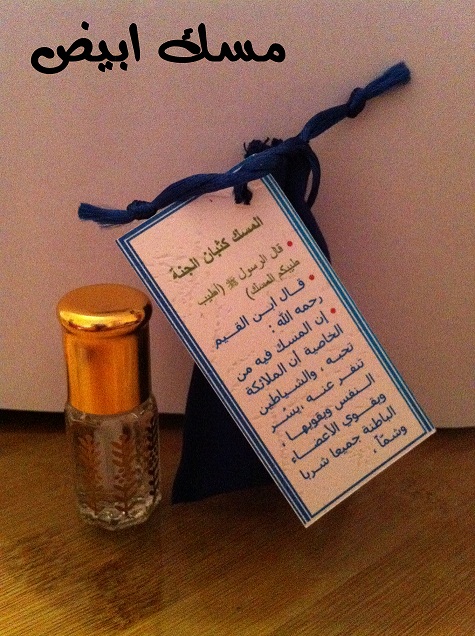 مسك ابيض
المسك كثبان الجنة
• قال الرسول ﷺ (أطيب
طيبكم المسك)
• قال ابن القيم
رحمه الله :
• إن المسك فيه من
الخاصية أن الملائكة
تحبه ، والشياطين
تنفر عنه ،يسر
النفس ويقويها ،
ويقوي الأعضاء
الباطنة جميعا شربا
وشماً ،